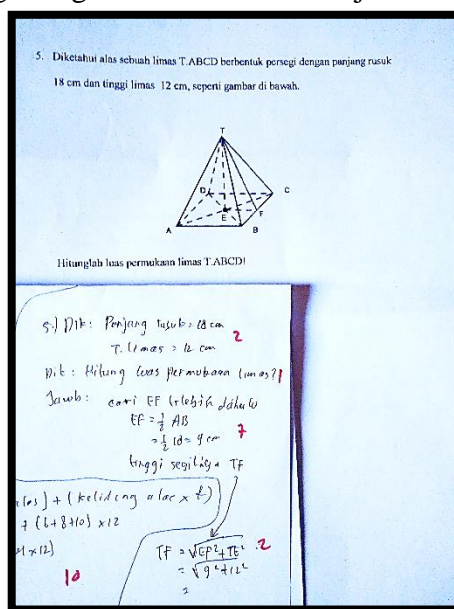 5. Diketahui alas sebuah limas T.ABCD berbentuk persegi dengan panjang rusuk
18 cm dan tinggi limas 12 cm, seperti gambar di bawah.
T
D
C
E
F
A
B
Hitunglah luas permukaan limas T.ABCD!
5.) Dik: Panjang rusuk = 18 cm
T. limas = 12 cm 2
Dit: Hitung luas permukaan limas?! 1
Jawb: cari EF terlebih dahulu
EF = 1/2 AB
= 1/2 18 = 9 cm 7
tinggi segitiga TF
alas) + (keliding alas x t)
+ (6+8+10) x12
x12)
10
TF = √EF²+TE² .2
= √9²+12²
=